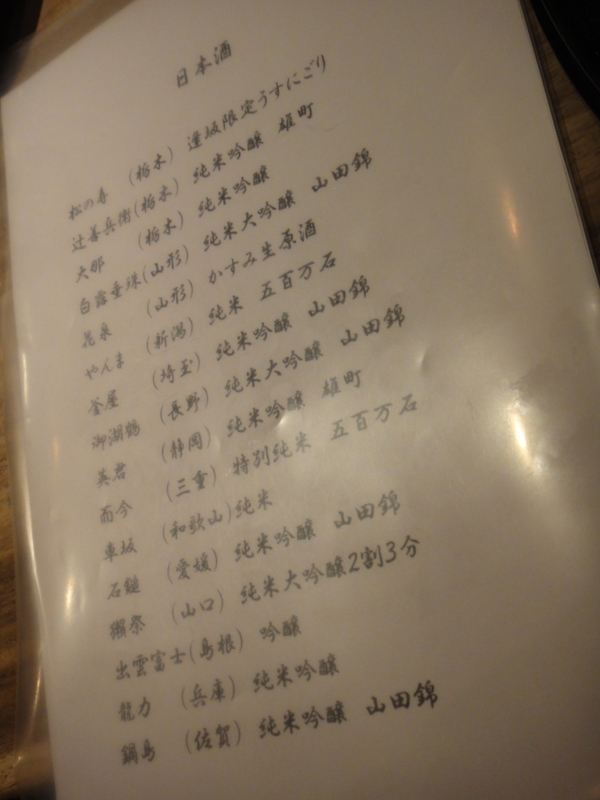 日本酒
松の寿 (栃木) 逢坂限定うすにごり
辻善兵衛(栃木) 純米吟醸 雄町
大那 (栃木) 純米吟醸
白露垂珠(山形) 純米大吟醸 山田錦
花泉 (山形) かすみ生原酒
やんま (新潟) 純米 五百万石
釜屋 (埼玉) 純米吟醸 山田錦
御湖鶴 (長野) 純米大吟醸 山田錦
英君 (静岡) 純米吟醸 雄町
而今 (三重) 特別純米 五百万石
車坂 (和歌山)純米
石鎚 (愛媛) 純米吟醸 山田錦
獺祭 (山口) 純米大吟醸2割3分
出雲富士(島根) 吟醸
龍力 (兵庫) 純米吟醸
鍋島 (佐賀) 純米吟醸 山田錦